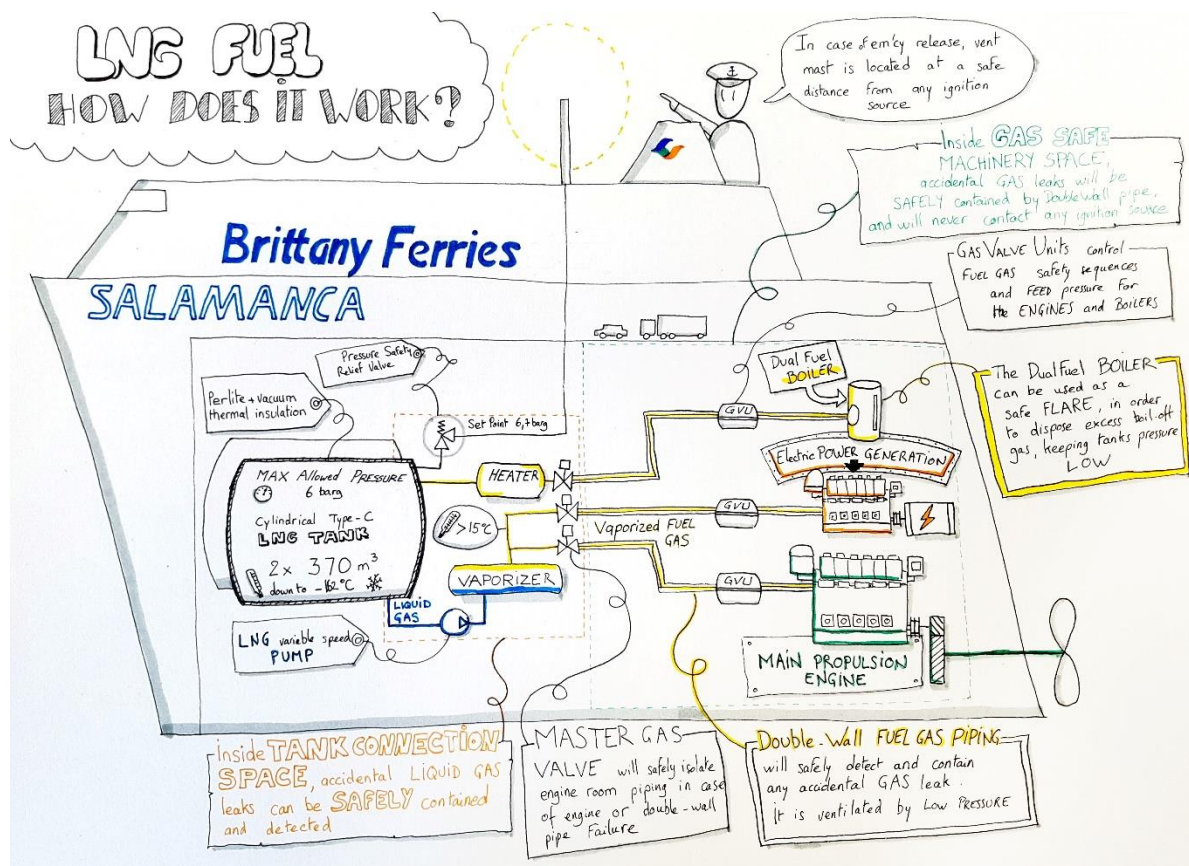 LNG FUEL
HOW DOES IT WORK?
In case of em'cy release, vent
mast is located at a safe
distance from any ignition
source
Inside GAS SAFE
MACHINERY SPACE,
accidental GAS leaks will be
SAFELY contained by Double Wall pipe,
and will never contact any ignition source
Brittany Ferries
SALAMANCA
GAS VALVE UNITS control
FUEL GAS safety sequences
and FEED pressure for
the ENGINES and BOILERS
Pressure Safety
Relief Valve
Perlite + vacuum
thermal insulation
Set Point 6,7 barg
Dual Fuel
BOILER
GVU
The Dual Fuel BOILER
can be used as a
safe FLARE, in order
to dispose excess boil-off
gas, keeping tanks pressure
LOW
Electric POWER GENERATION
HEATER
MAX Allowed PRESSURE
6 barg
Cylindrical Type-C
LNG TANK
2x 370 m³
down to -162°C
>15°C
Vaporized FUEL
GAS
GVU
VAPORIZER
GVU
LIQUID
GAS
LNG variable speed
PUMP
MAIN PROPULSION
ENGINE
inside TANK CONNECTION
SPACE, accidental LIQUID GAS
leaks can be SAFELY contained
and detected
MASTER GAS
VALVE will safely isolate
engine room piping in case
of engine or double-wall
pipe Failure
Double-Wall FUEL GAS PIPING
will safely detect and contain
any accidental GAS leak.
It is ventilated by Low PRESSURE